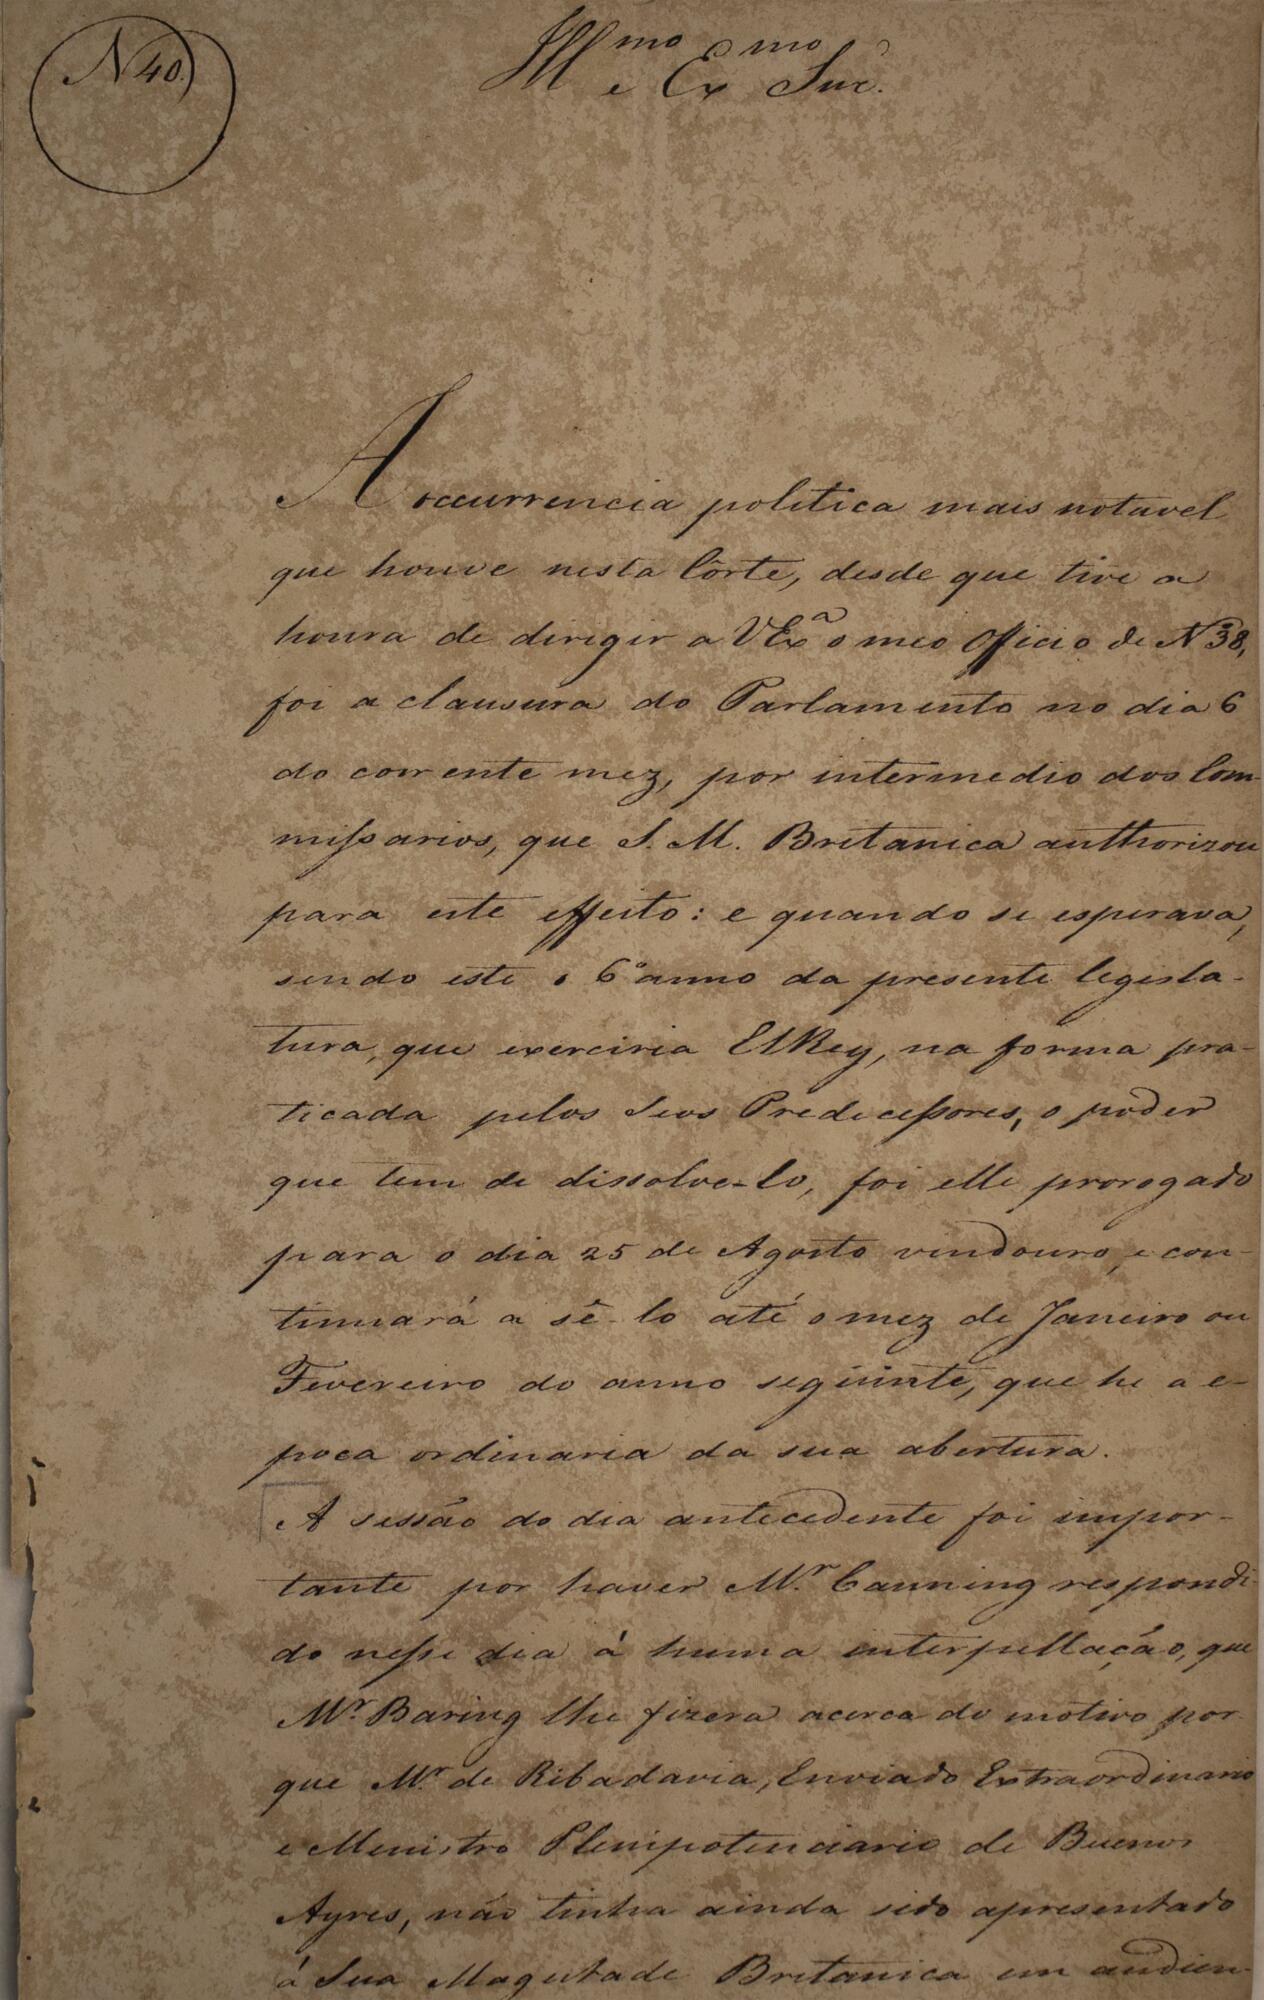 N 40.
Illmo e Exmo Snr.
A occurrencia politica mais notavel
que houve nesta Côrte, desde que tive a
honra de dirigir a VExa o meo Officio de No 38,
foi a clausura do Parlamento no dia 6
do corrente mez, por intermedio dos Com-
missarios, que S. M. Britanica authorizou
para este effeito: e quando se esperava,
sendo este o 6o anno da presente legisla-
tura, que exerciria ElRey, na forma pra-
ticada pelos Seos Predecessores, o poder
que tem de dissolve-lo, foi elle prorogado
para o dia 25 de Agosto vindouro, e con-
tinuará a sê-lo até o mez de Janeiro ou
Fevereiro do anno següinte, que he a e-
poca ordinaria da sua abertura.
A sessão do dia antecedente foi impor-
tante por haver Mr. Canning respondi-
do nesse dia á huma interpellação, que
Mr. Baring lhe fizera acerca do motivo por
que Mr. de Ribadavia, Enviado Extraordinario
e Menistro Plenipotenciario de Buenos
Ayres, não tinha ainda sido apresentado
á Sua Magestade Britanica em audien-